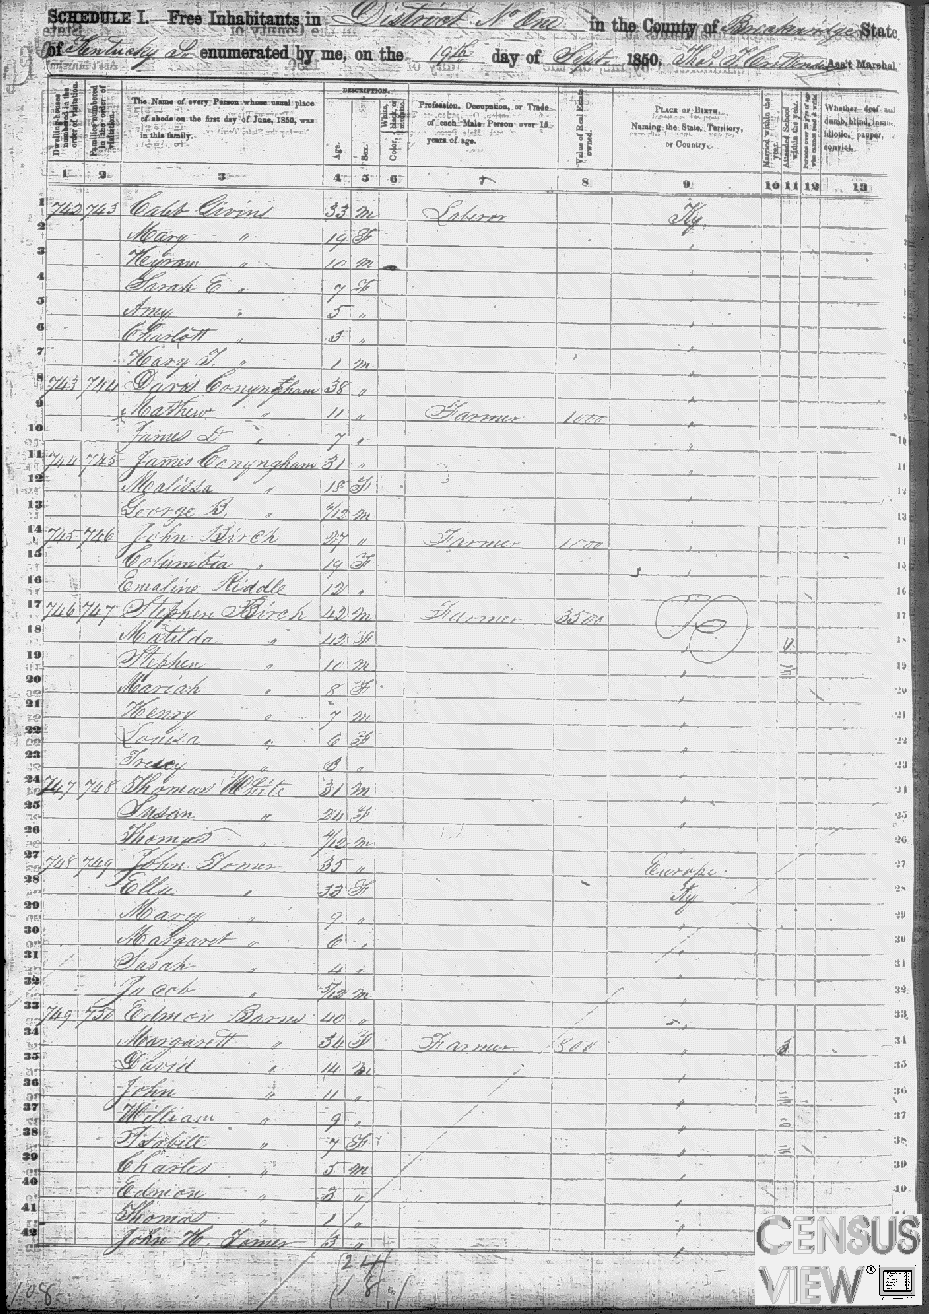 SCHEDULE I. Free Inhabitants in District No One in the County of Breckenridge State
of Kentucky enumerated by me, on the 19th day of Sept 1850. Ass't Marshal
Dwelling-houses numbered in the order of visitation.
Families numbered in the order of visitation.
The Name of every Person whose usual place of abode on the first day of June, 1850, was in this family.
DESCRIPTION.
Age.
Sex.
Color, White, black, or mulatto.
Profession, Occupation, or Trade of each Male Person over 15 years of age.
Value of Real Estate owned.
PLACE OF BIRTH.
Naming the State, Territory, or Country.
Married within the year.
Attended School within the year.
Whether deaf and dumb, blind, insane, idiotic, pauper, or convict.
1 2 3 4 5 6 7 8 9 10 11 12 13
1 742 743 Caleb Givins 33 m Laberor Ky.
2 Mary " 19 F "
3 Hyram " 10 m "
4 Sarah E " 7 F "
5 Amy " 5 " "
6 Charlott " 3 " "
7 Harry T. " 1 m "
8 743 744 Davis Conyngham 38 " "
9 Mathew " 11 " Farmer 1000 "
10 James D " 7 " "
11 744 745 James Conyngham 31 " "
12 Malissa " 18 F "
13 George B. " /12 m "
14 745 746 John Birch 27 " Farmer 1000 "
15 Columbia " 19 F "
16 Emaline Riddle 12 " "
17 746 747 Stephen Birch 42 m Farmer 3500
18 Matilda " 12 F "
19 Stephen " 10 m "
20 Mariah " 8 F "
21 Henry " 7 m "
22 Louisa " 6 F "
23 "
24 747 748 Thomas White 31 m "
25 Susan " 24 F "
26 Thomas " /12 m "
27 748 749 John Toner 35 " Europe
28 Ella " 33 F Ky
29 Mary " 9 " "
30 Margaret " 6 " "
31 Sarah " 4 " "
32 Jacob " /12 m "
33 749 750 Edmon Barns 40 " "
34 Margarett " 34 F Farmer 800 "
35 David " 14 m "
36 John " 11 " "
37 William " 9 " "
38 " 7 F "
39 Charles " 5 m "
40 Edmon " 3 " "
41 Thomas " 1 " "
42 John H. Toner 3 " "
24
18
108
CENSUS
VIEW®